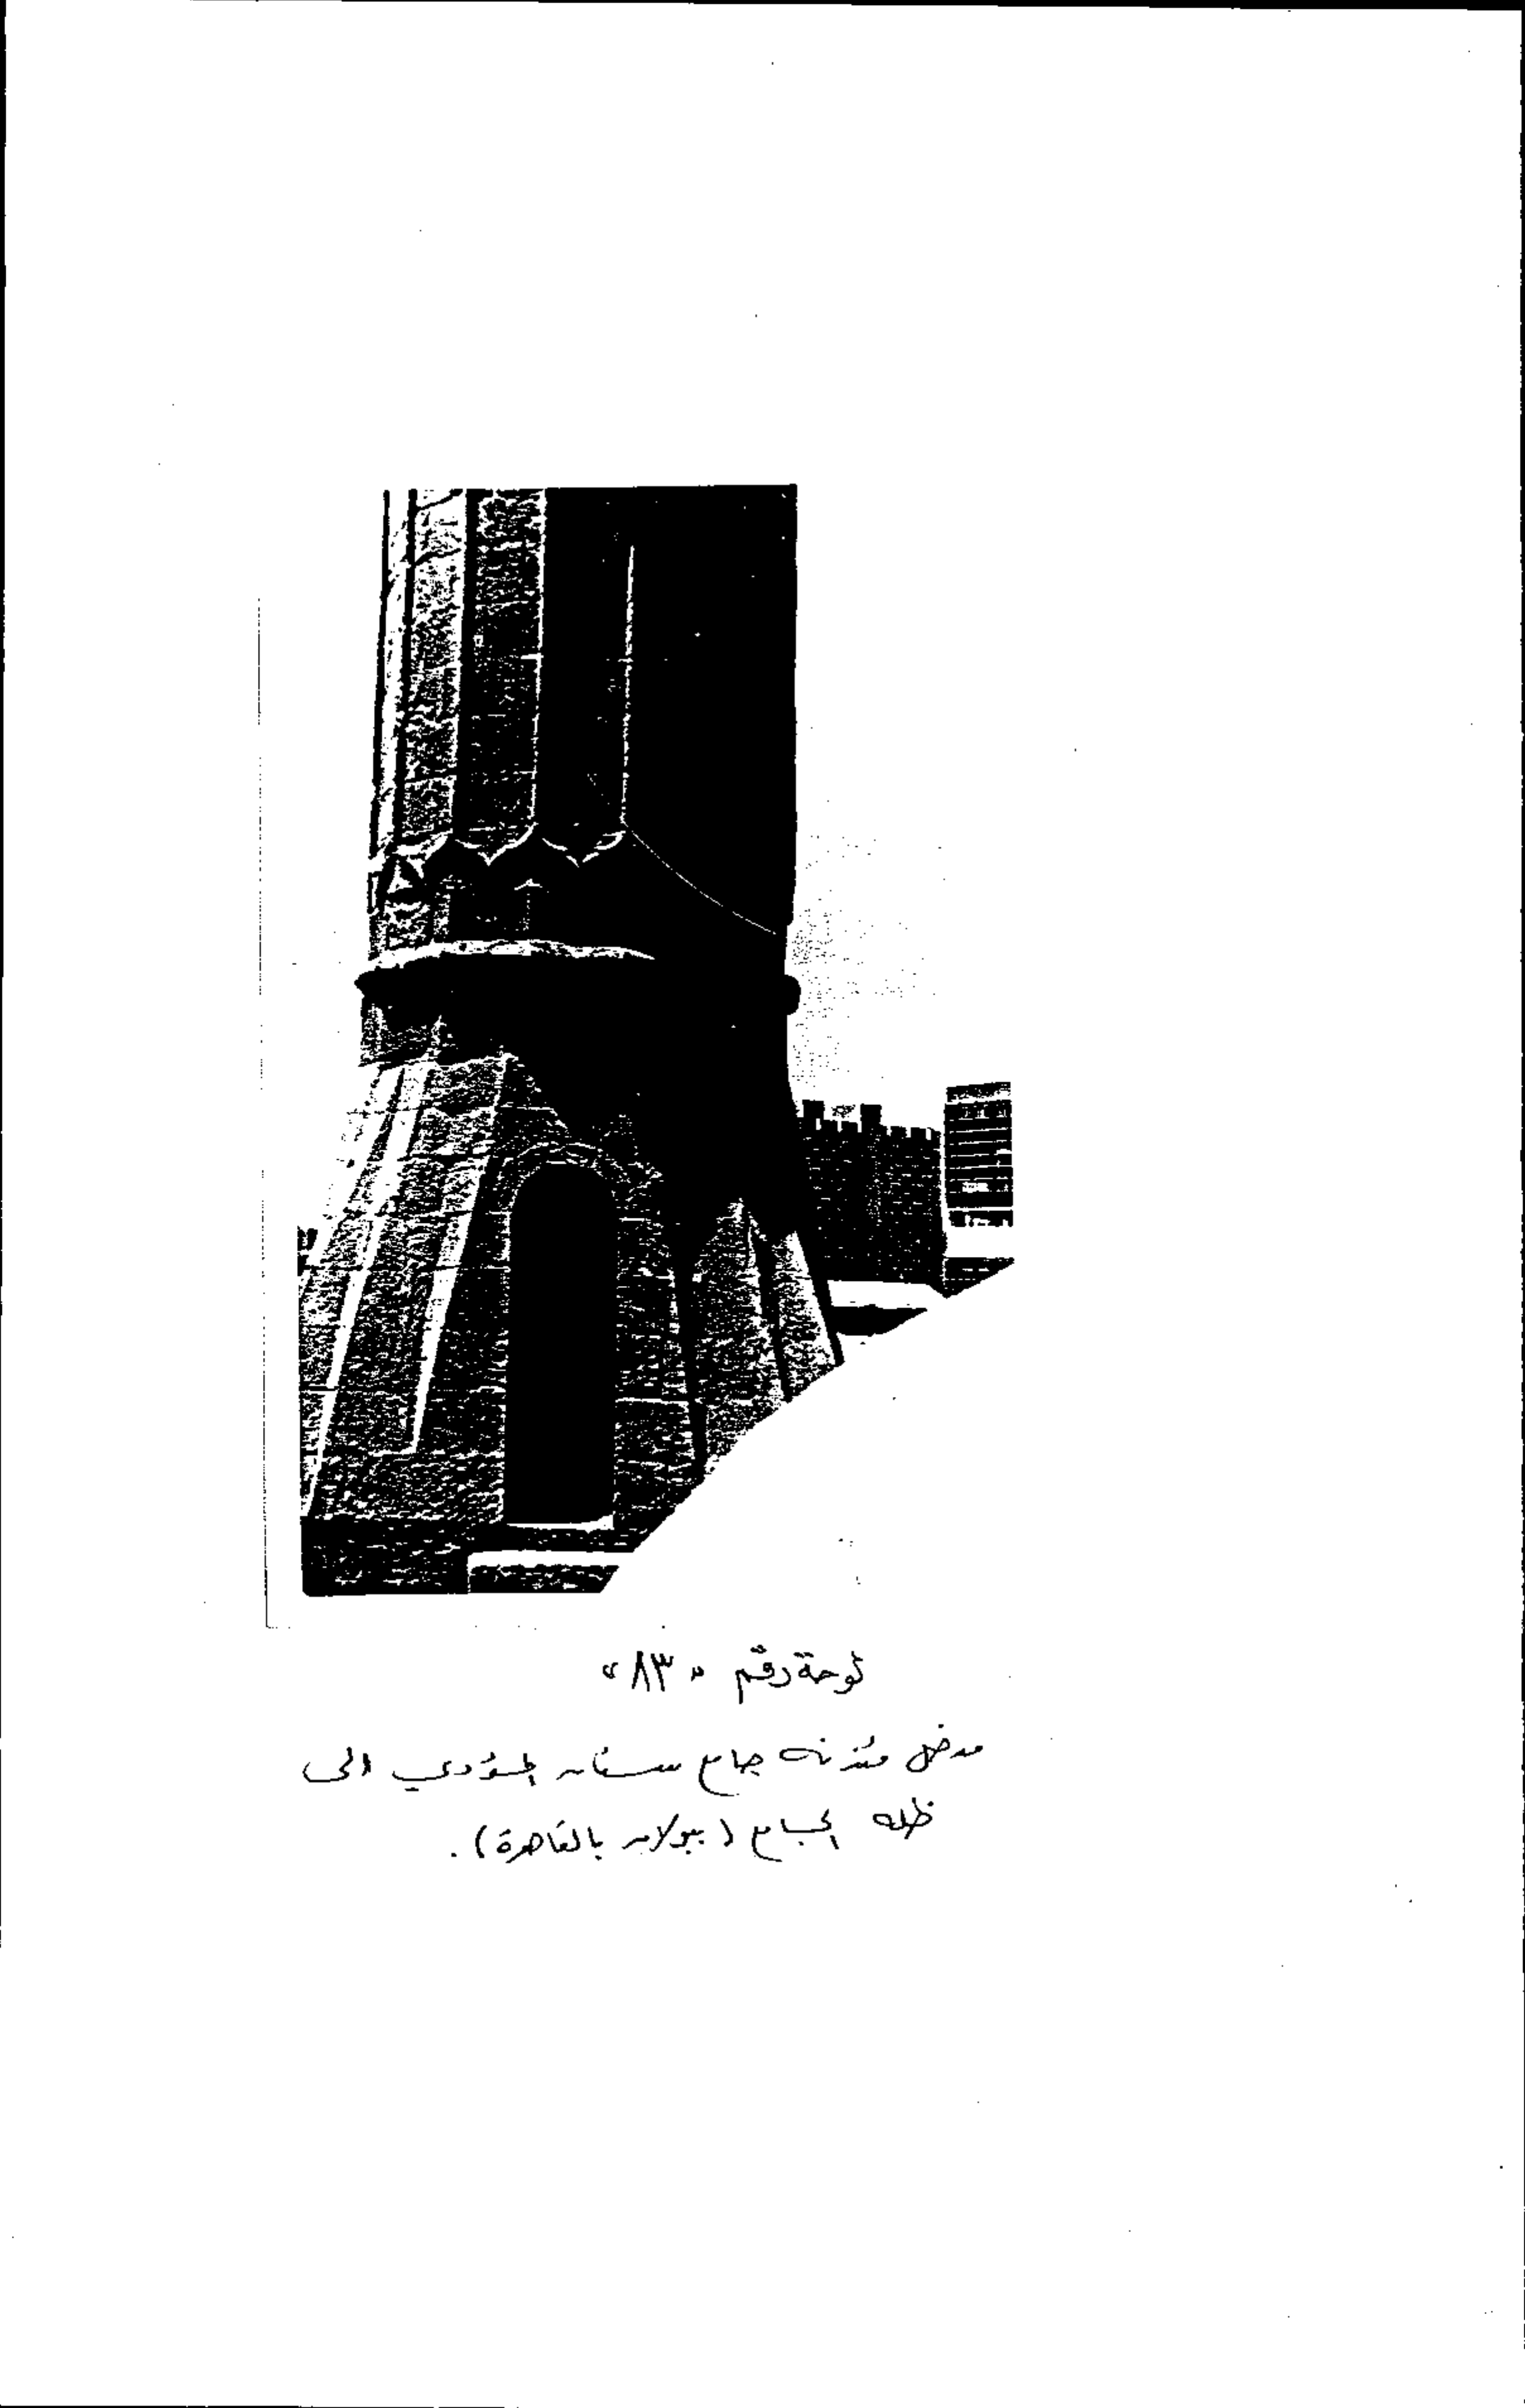 لوحة رقم " ٨٣ "
مدخل مئذنه جامع سنان المؤدي الى
ظله الجامع ( ببولاق بالقاهرة ) .